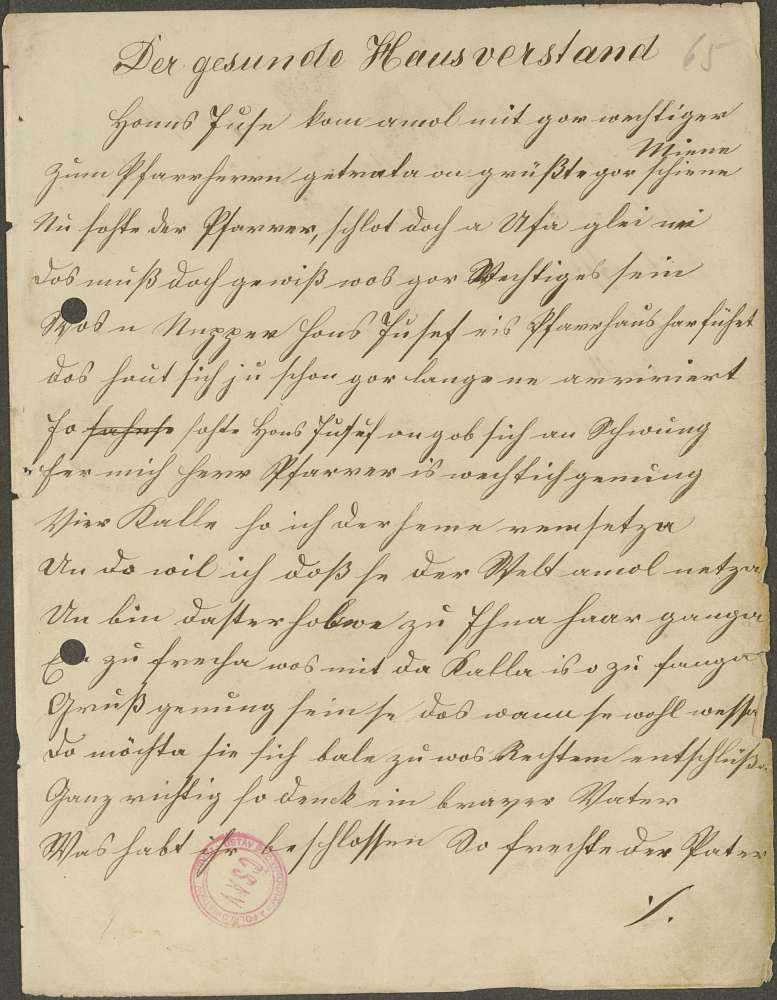 Der gesunde Hausverstand 65
Honns Juse kom amol mit gor wechtiger
Miene
Zum Pfarrherrn getrata on grüßte gor schiene
Nu sohte der Pfarrer, schlot doch a Ufa glei nei
Dos muß doch gewiß wos gor Wechtiges sein
Wos n Nupper Hons Jusef eis Pfarrhaus harführt
Dos hout sich ju schon gor lange ne arriviert
Jo sohte Hons Jusuf on gob sich an Schwung
fer mich Herr Pfarrer is wechtich genung
Vier Kalle ho ich derheme remsetza
Un do wil ich doß se der Welt amol netza
Un bin dasterholwe zu Ihna haar ganga
zu frecha wos mit da Kalla is o zu fanga
Gruß genung sein se das wann se wohl wessa
Do möchta sie sich bale zu wos Rechtem entschlüß
Ganz richtig so denck ein braver Vater
Was habt ihr beschlossen So frechte der Pater
./.